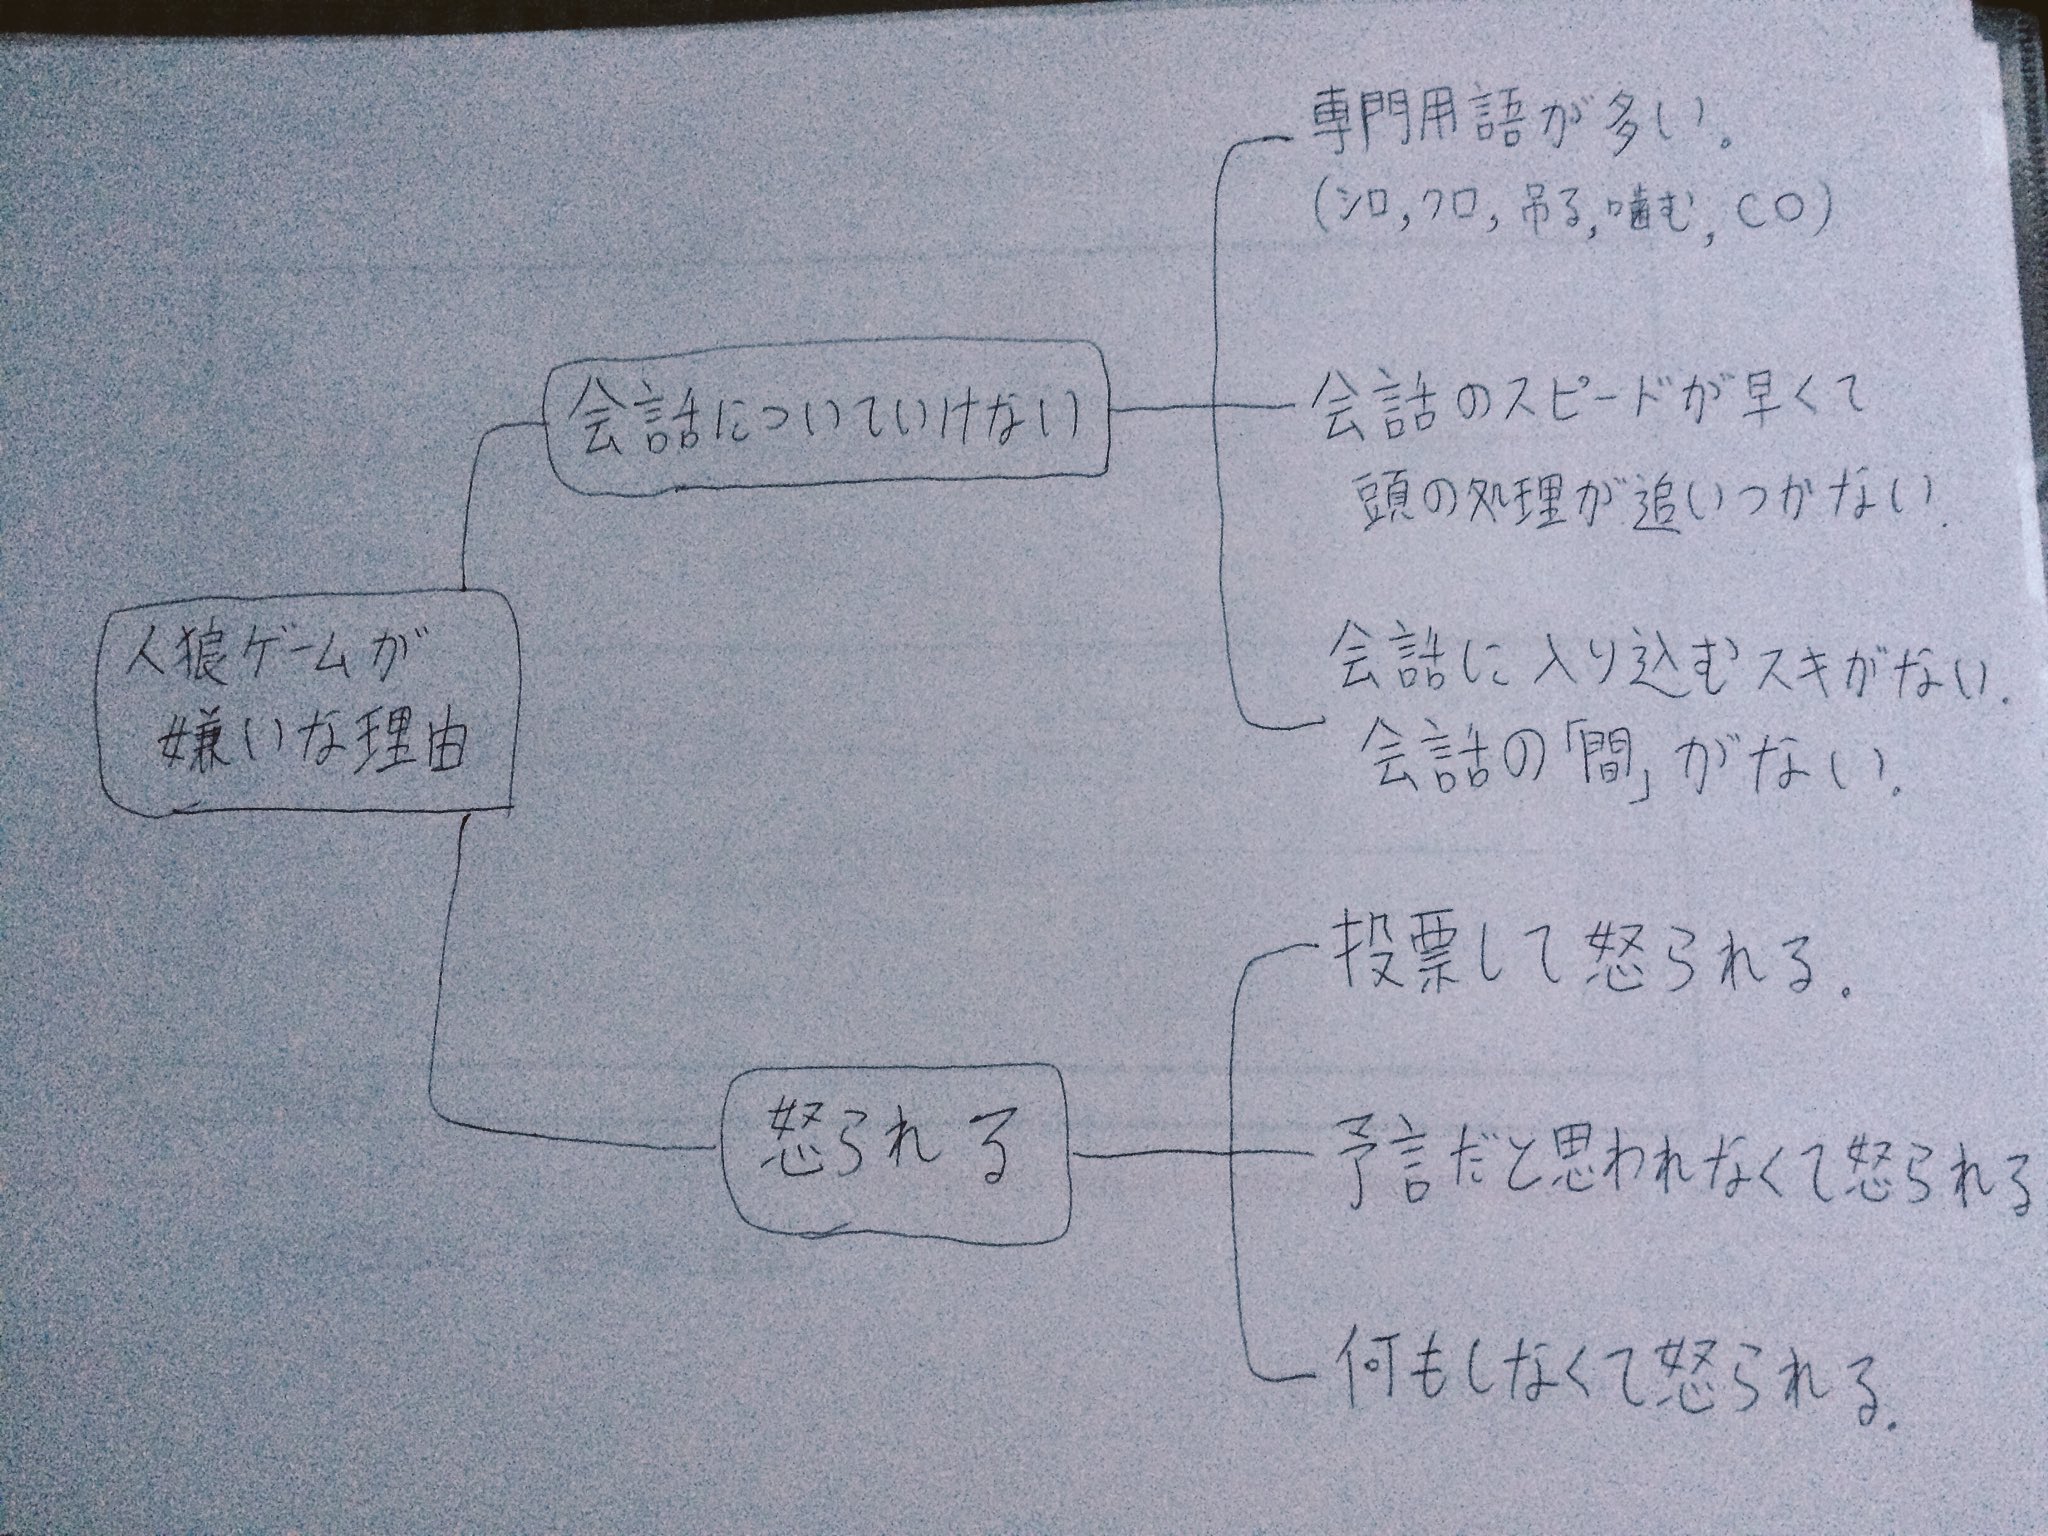 人狼ゲームが
嫌いな理由
会話についていけない
専門用語が多い。
(シロ,クロ,吊る,噛む,CO)
会話のスピードが早くて
頭の処理が追いつかない.
会話に入り込むスキがない.
会話の「間」がない.
怒られる
投票して怒られる.
予言だと思われなくて怒られる
何もしなくて怒られる.